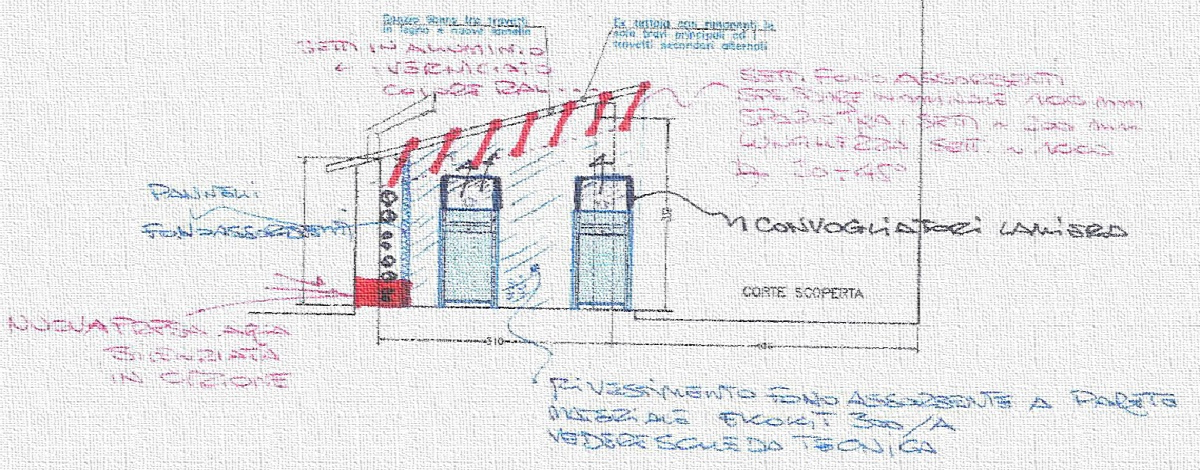 Spazio libero tra travetti
in legno e nuove lamelle
Ex tettoia con rimanenti le
sole travi principali ed i
travetti secondari alternati
SETTI IN ALLUMINIO
VERNICIATO
COLORE RAL
SETTI FONO ASSORBENTI
SPESSORE NOMINALE 100 mm
SPAZIATURA SETTI ~ 200 mm
LUNGHEZZA SETTI ~ 1000
30÷45°
PANNELLI
FONOASSORBENTI
N CONVOGLIATORI LAMIERA
CORTE SCOPERTA
NUOVA PRESA ARIA
SILENZIATA
IN OPZIONE
510
RIVESTIMENTO FONO ASSORBENTE A PARETE
MATERIALE EKOKIT 300/A
VEDERE SCHEDA TECNICA